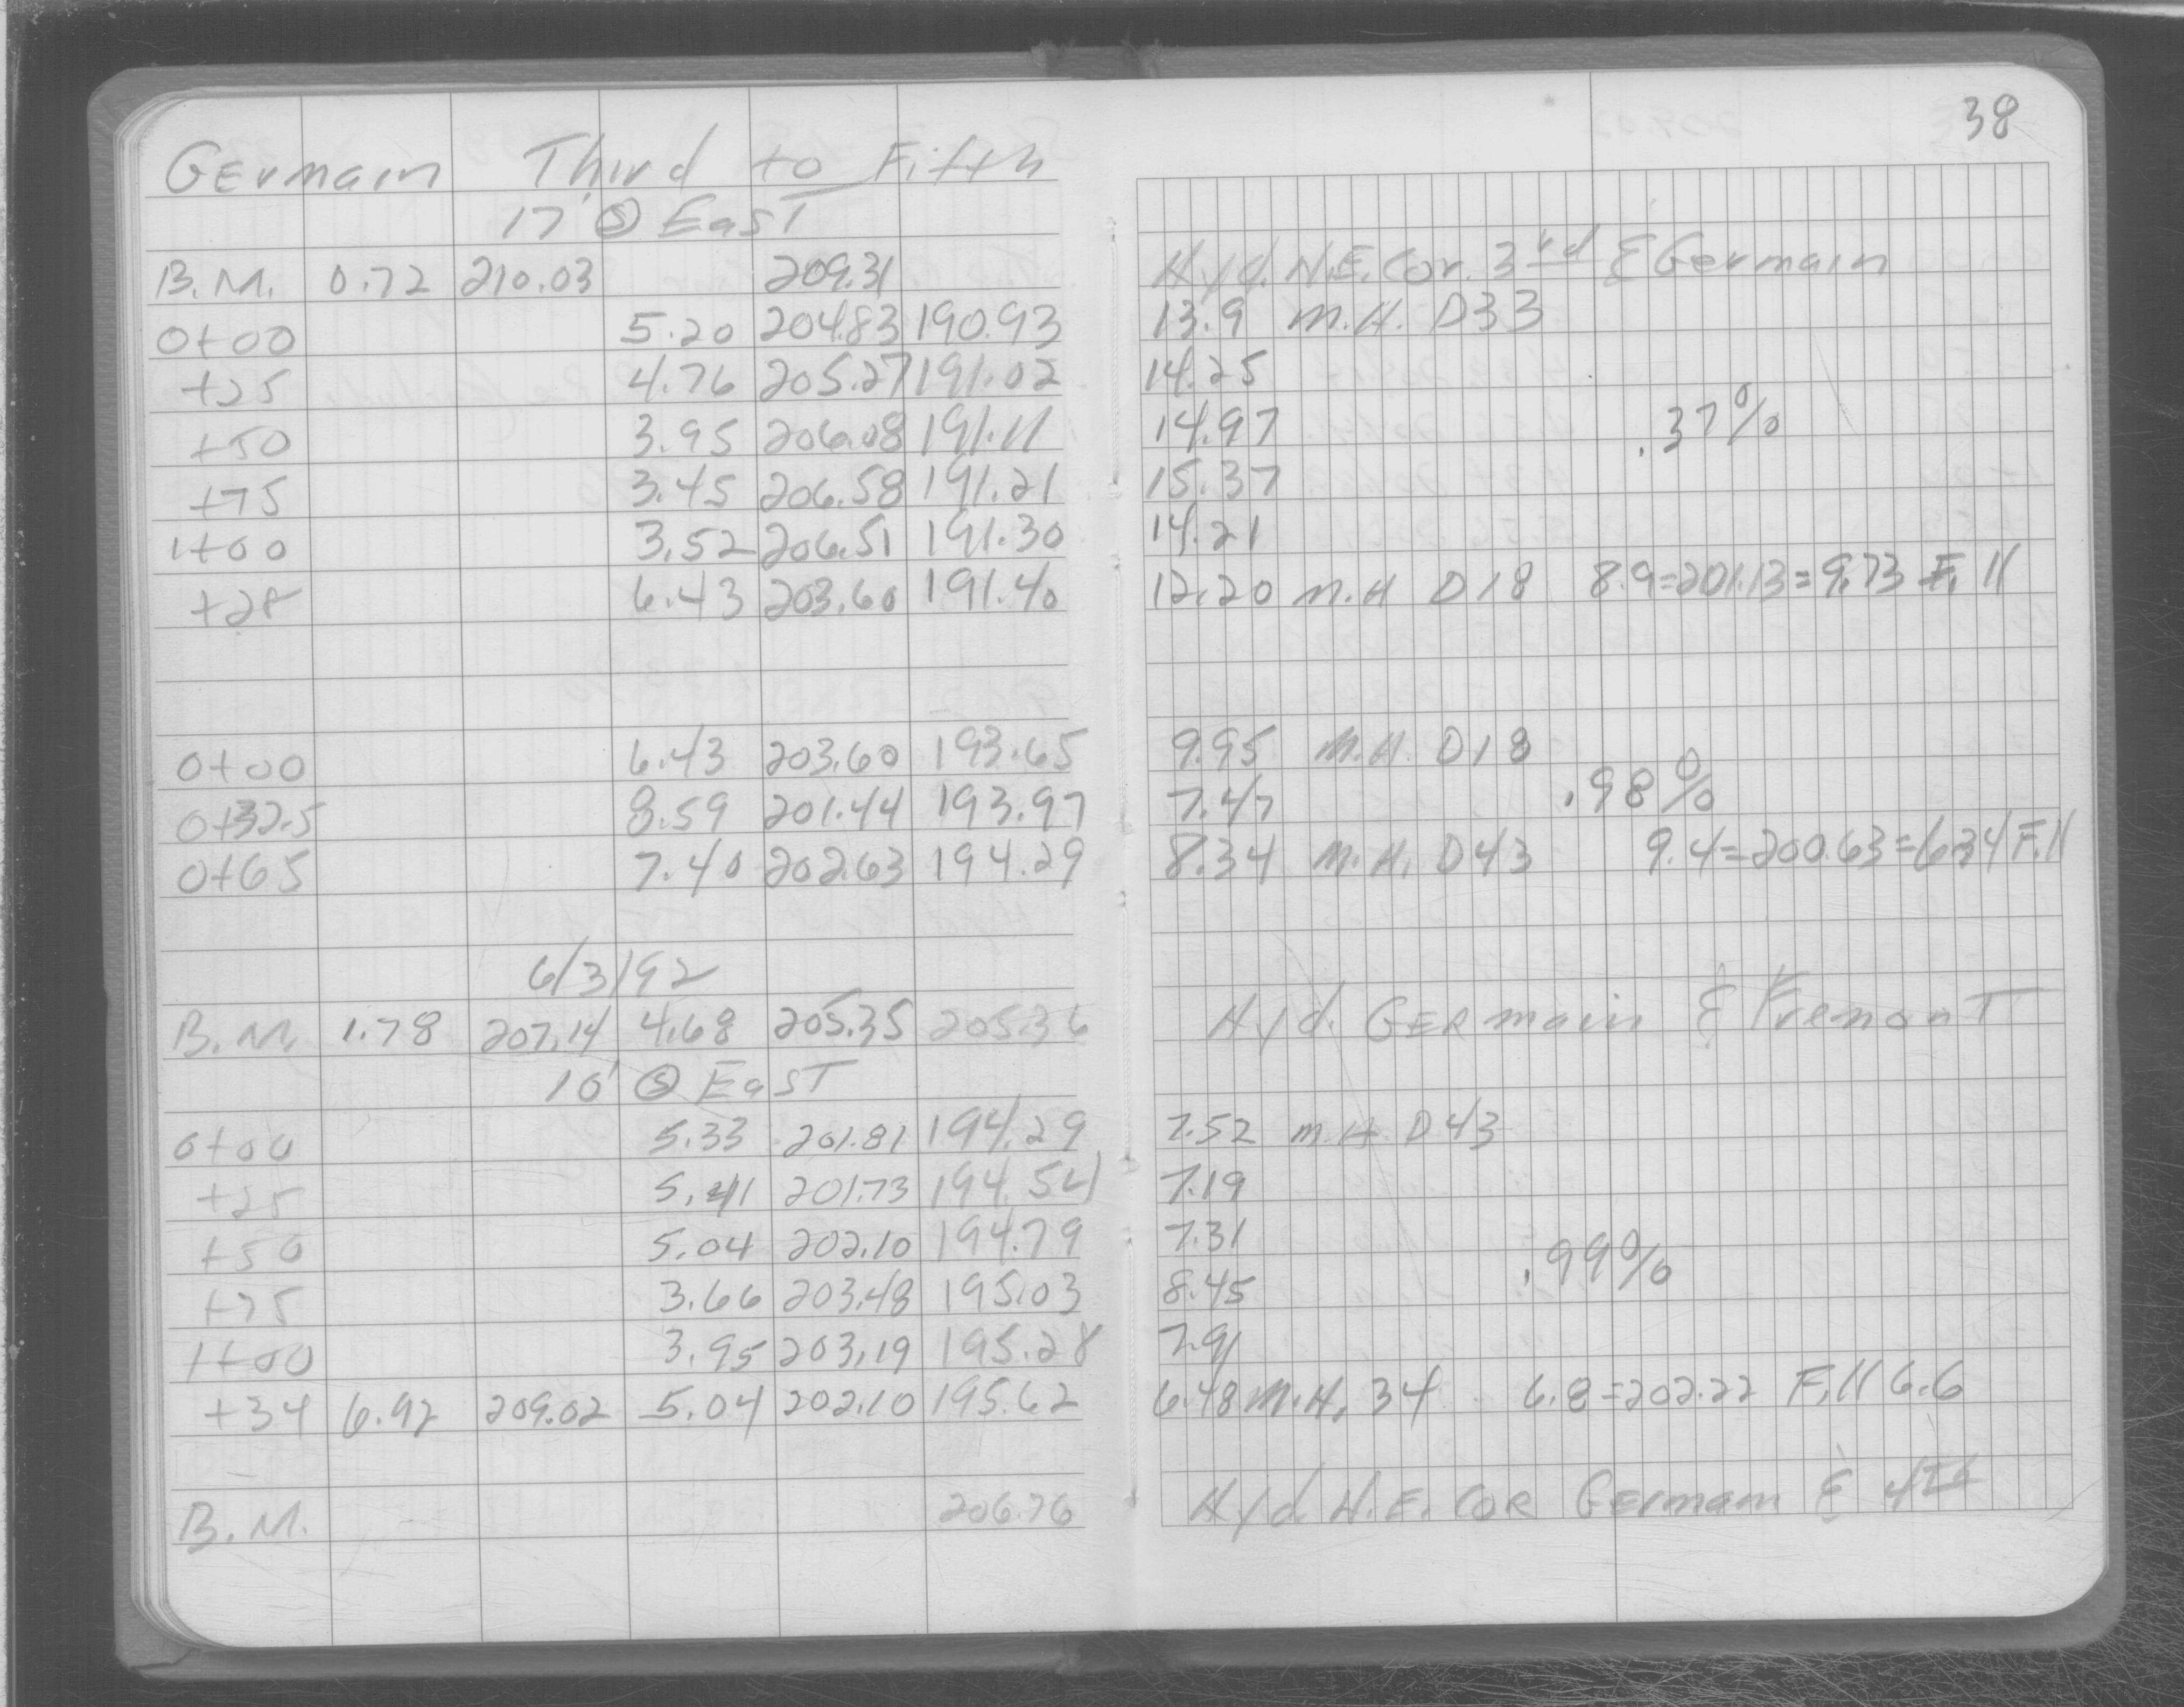 38
Germain Third to Fifth
17' Ⓢ East
B.M. 0.72 210.03 209.31 Hyd. N.E. Cor. 3rd & Germain
0+00 5.20 204.83 190.93 13.9 M.H. D33
+25 4.76 205.27 191.02 14.25
+50 3.95 206.08 191.11 14.97 .37%
+75 3.45 206.58 191.21 15.37
1+00 3.52 206.51 191.30 14.21
+28 6.43 203.60 191.40 12.20 M.H D18 8.9=201.13=9.73 Fill
0+00 6.43 203.60 193.65 9.95 M.H. D18
0+32.5 8.59 201.44 193.97 7.47 .98%
0+65 7.40 202.63 194.29 8.34 M.H. D43 9.4=200.63=6.34 Fill
6/3/92
B.M. 1.78 207.14 4.68 205.35 205.36 Hyd. Germain & Fremont
10' Ⓢ East
0+00 5.33 201.81 194.29 7.52 M.H D43
+25 5.41 201.73 194.54 7.19
+50 5.04 202.10 194.79 7.31 .99%
+75 3.66 203.48 195.03 8.45
1+00 3.95 203.19 195.28 7.91
+34 6.92 209.02 5.04 202.10 195.62 6.48 M.H. 34 6.8=202.22 Fill 6.6
B.M. 206.76 Hyd N.E. Cor Germain & 4th